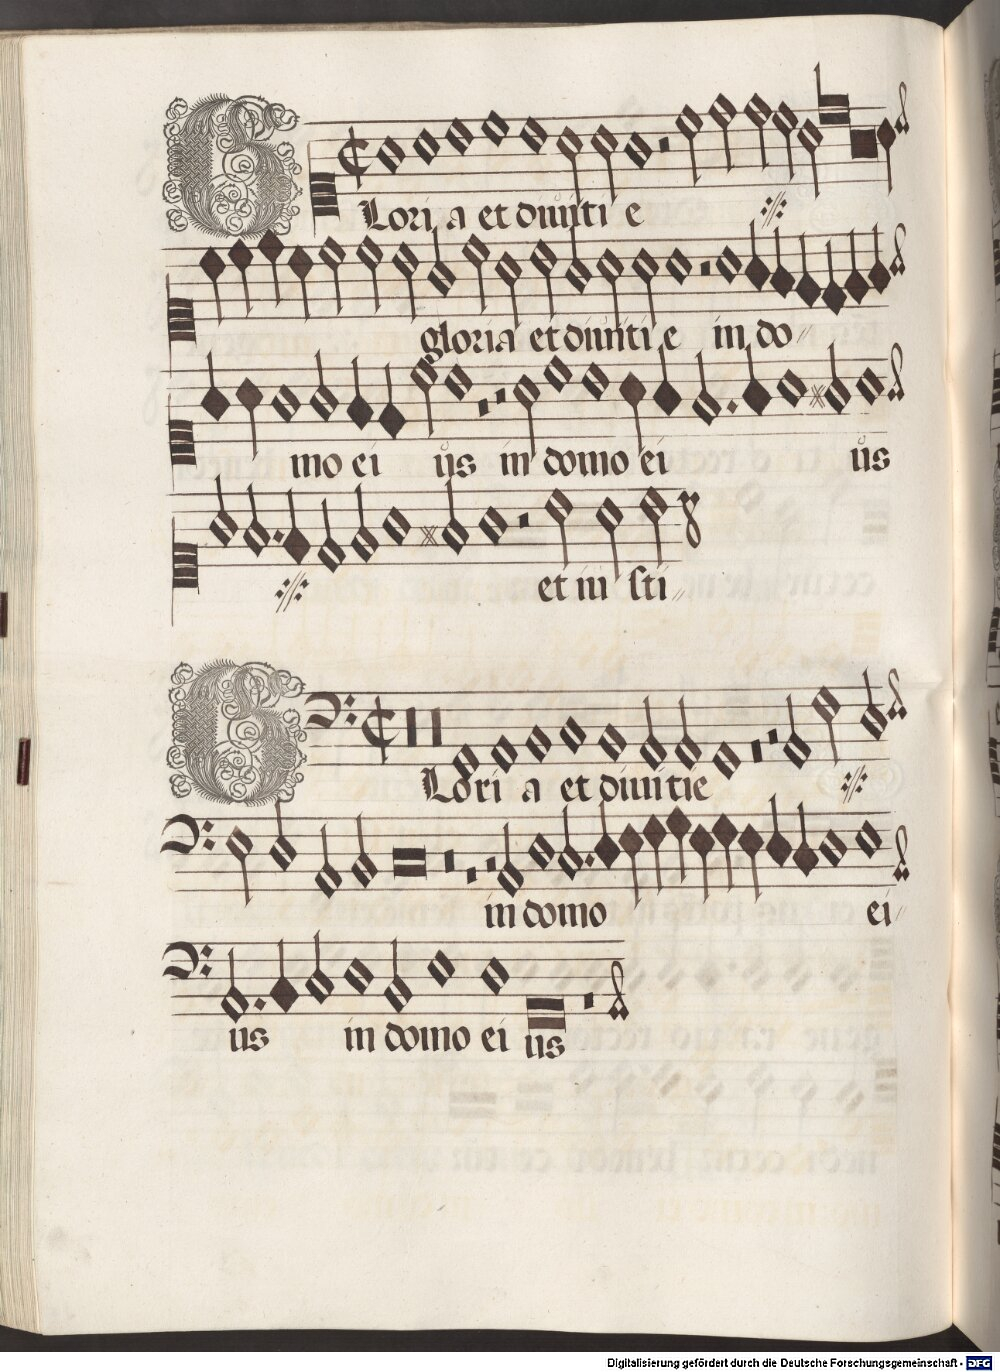 Gloria et diuiti e
gloria et diuiti e in do
mo ei us in domo ei us
et in sti
Gloria et diuitie
in domo ei
us in domo ei us
Digitalisierung gefördert durch die Deutsche Forschungsgemeinschaft - DFG